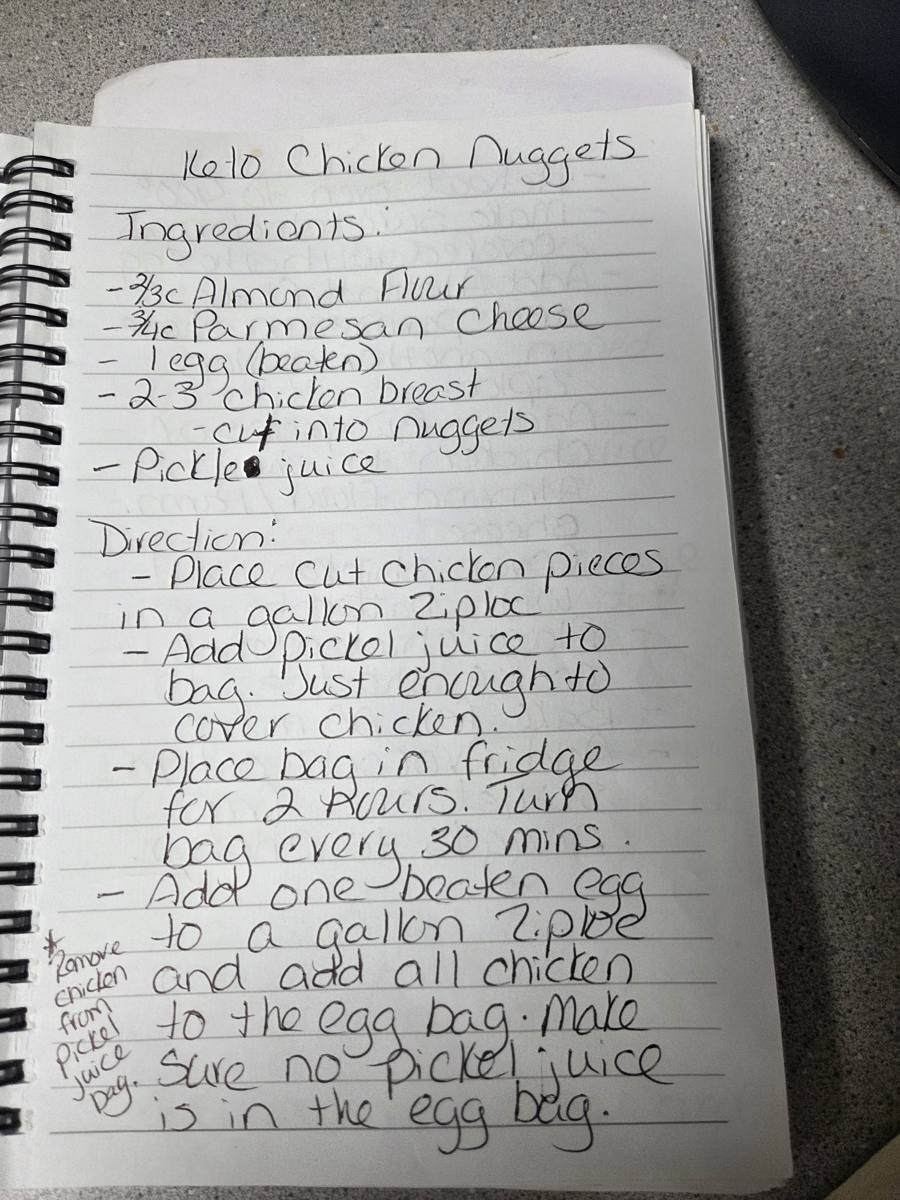 Keto Chicken Nuggets
Ingredients:
- 2/3c Almond Flour
- 3/4c Parmesan Cheese
- 1 egg (beaten)
- 2-3 chicken breast
- cut into nuggets
- Pickle juice
Direction:
- Place cut chicken pieces
in a gallon Ziploc
- Add pickel juice to
bag. Just enough to
cover chicken.
- Place bag in fridge
for 2 hours. Turn
bag every 30 mins.
- Add one beaten egg
to a gallon Ziploc
and add all chicken
to the egg bag. Make
sure no pickel juice
is in the egg bag.
* Remove
chicken
from
pickel
juice
bag.